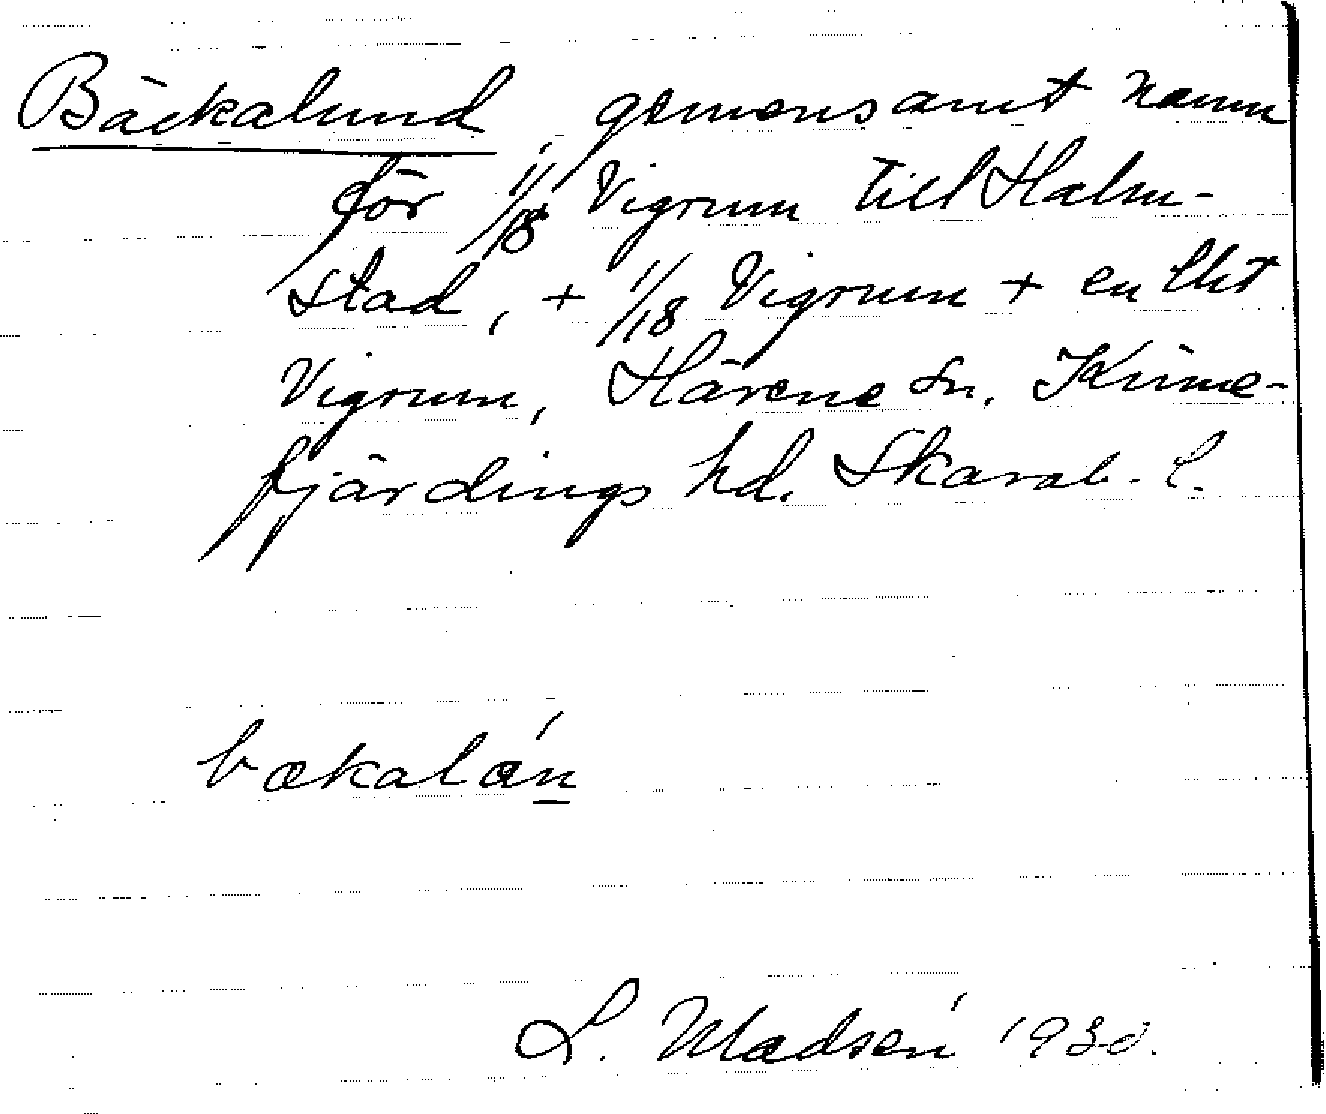 Bäckalund, gemensamt namn
för 1/18 Vigrum till Halm-
stad, + 1/18 Vigrum + en lht
Vigrum, Härene sn. Kinne-
fjärdings hd. Skarab. l.
bækalán
L. Madsén 1930.